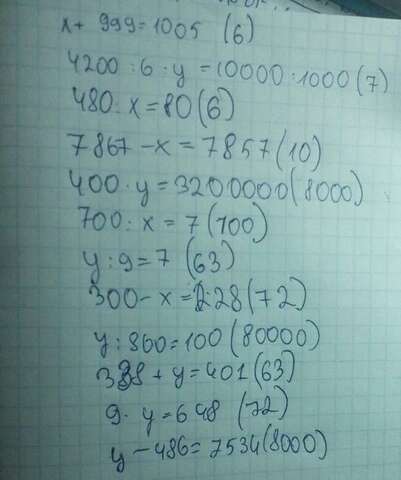 x + 999 = 1005 (6)
4200 : 6 · y = 10000 · 1000 (7)
480 : x = 80 (6)
7867 - x = 7857 (10)
400 · y = 3200000 (8000)
700 : x = 7 (100)
y : 9 = 7 (63)
300 - x = 228 (72)
y : 800 = 100 (80000)
338 + y = 401 (63)
9 · y = 648 (72)
y - 486 = 7534 (8000)